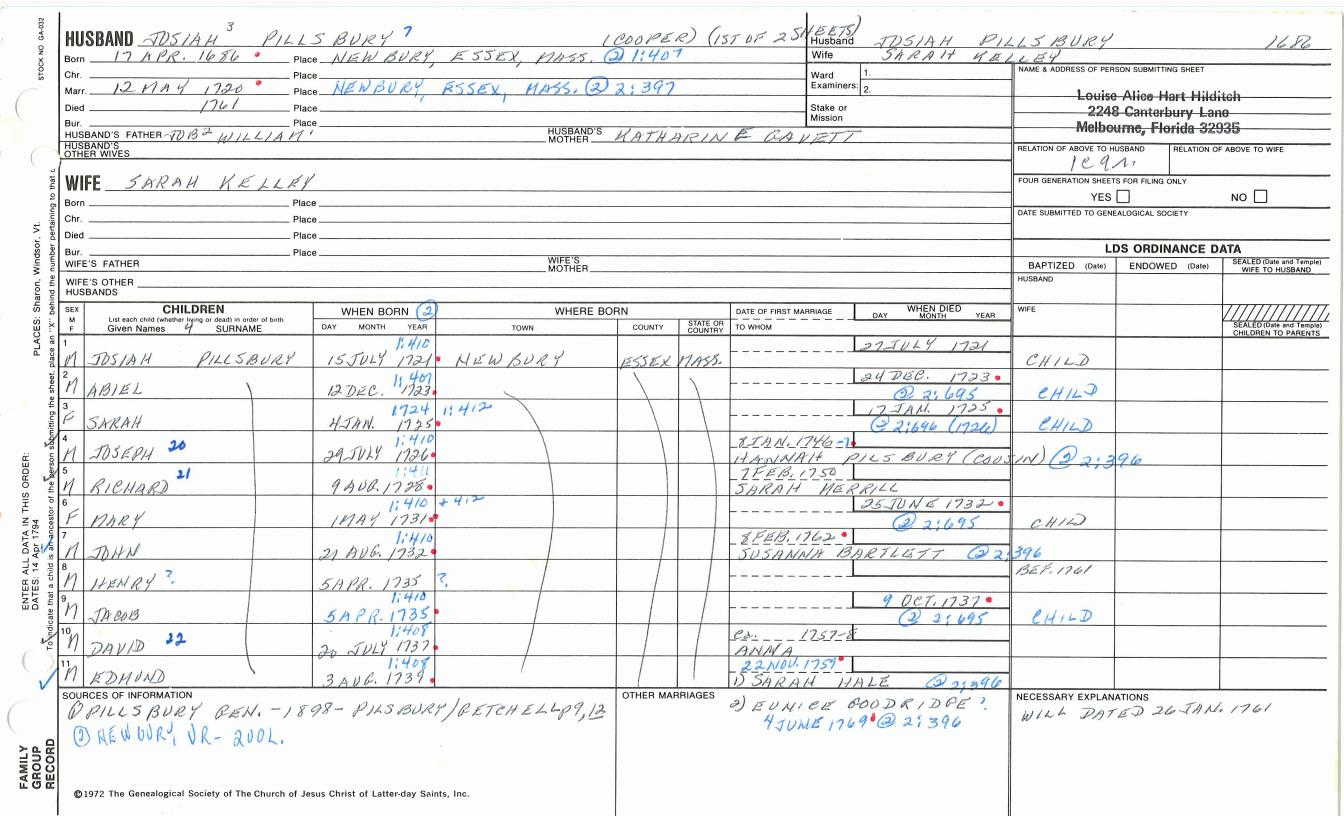 STOCK NO. GA-032
HUSBAND JOSIAH 3 PILLSBURY 7 (COOPER) (1ST OF 2 SHEETS)
Born 17 APR. 1686 Place NEWBURY, ESSEX, MASS. ② 1:407
Chr. Place
Marr. 12 MAY 1720 Place NEWBURY, ESSEX, MASS. ② 2:397
Died 1761 Place
Bur. Place
HUSBAND'S FATHER JOB 2 WILLIAM 1 HUSBAND'S MOTHER KATHARINE GAVETT
HUSBAND'S OTHER WIVES
Husband JOSIAH PILLSBURY 1686
Wife SARAH KELLEY
Ward Examiners: 1.
2.
Stake or Mission
NAME & ADDRESS OF PERSON SUBMITTING SHEET
Louise Alice Hart Hilditch
2248 Canterbury Lane
Melbourne, Florida 32935
RELATION OF ABOVE TO HUSBAND RELATION OF ABOVE TO WIFE
FOUR GENERATION SHEETS FOR FILING ONLY
YES NO
DATE SUBMITTED TO GENEALOGICAL SOCIETY
WIFE SARAH KELLEY
Born Place
Chr. Place
Died Place
Bur. Place
WIFE'S FATHER WIFE'S MOTHER
WIFE'S OTHER HUSBANDS
LDS ORDINANCE DATA
BAPTIZED (Date) ENDOWED (Date) SEALED (Date and Temple) WIFE TO HUSBAND
HUSBAND
WIFE
SEALED (Date and Temple) CHILDREN TO PARENTS
SEX M F CHILDREN WHEN BORN ② WHERE BORN DATE OF FIRST MARRIAGE WHEN DIED
List each child (whether living or dead) in order of birth
Given Names 4 SURNAME DAY MONTH YEAR TOWN COUNTY STATE OR COUNTRY TO WHOM DAY MONTH YEAR
1:410 27 JULY 1721
1 M JOSIAH PILLSBURY 15 JULY 1721 NEWBURY ESSEX MASS. CHILD
1:407 24 DEC. 1723
2 M ABIEL 12 DEC. 1723 ② 2:695 CHILD
1724 1:412 17 JAN. 1725
3 F SARAH 4 JAN. 1725 ② 2:696 (1724) CHILD
1:410 8 JAN. 1746-7
4 M JOSEPH 20 29 JULY 1726 HANNAH PILSBURY (COUSIN) ② 2:396
1:411 7 FEB. 1750
5 M RICHARD 21 9 AUG. 1728 SARAH MERRILL
1:410 + 412 25 JUNE 1732
6 F MARY 1 MAY 1731 ② 2:695 CHILD
1:410 8 FEB. 1762
7 M JOHN 21 AUG. 1732 SUSANNA BARTLETT ② 2:396
8 M HENRY ? 5 APR. 1735 ? BEF. 1761
1:410 9 OCT. 1737
9 M JACOB 5 APR. 1735 ② 2:695 CHILD
1:408 ca. 1757-8
10 M DAVID 22 20 JULY 1737 ANNA
1:408 22 NOV. 1759
11 M EDMUND 3 AUG. 1739 1) SARAH HALE ② 2:396
SOURCES OF INFORMATION
① PILLSBURY GEN. - 1898 - PILSBURY/GETCHELL p9,12
② NEWBURY, VR - 2 VOL.
OTHER MARRIAGES
2) EUNICE GOODRIDGE ?
4 JUNE 1769 ② 2:396
NECESSARY EXPLANATIONS
WILL DATED 26 JAN. 1761
©1972 The Genealogical Society of The Church of Jesus Christ of Latter-day Saints, Inc.
PLACES: Sharon, Windsor, Vt.
ENTER ALL DATA IN THIS ORDER:
DATES: 14 Apr 1794
To indicate that a child is an ancestor of the person submitting the sheet, place an "X" behind the number pertaining to that c
FAMILY
GROUP
RECORD